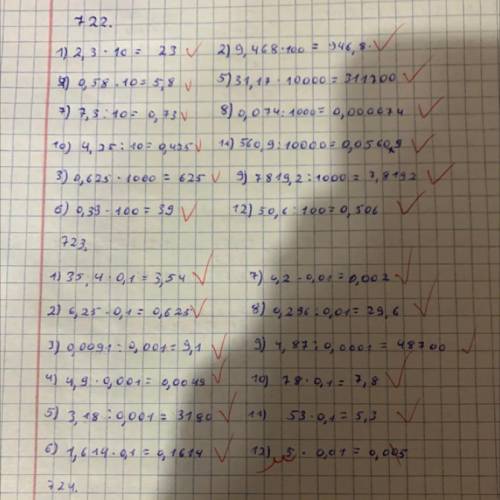 722.
1) 2,3 · 10 = 23
2) 9,468 · 100 = 946,8
4) 0,58 · 10 = 5,8
5) 31,17 · 10000 = 311700
7) 7,3 : 10 = 0,73
8) 0,074 : 1000 = 0,000074
10) 4,25 : 10 = 0,425
11) 560,9 : 10000 = 0,05609
3) 0,625 · 1000 = 625
9) 7819,2 : 1000 = 7,8192
6) 0,39 · 100 = 39
12) 50,6 : 100 = 0,506
723.
1) 35,4 · 0,1 = 3,54
7) 0,2 · 0,01 = 0,002
2) 6,25 · 0,1 = 0,625
8) 0,296 : 0,01 = 29,6
3) 0,0091 : 0,001 = 9,1
9) 4,87 : 0,0001 = 48700
4) 4,9 · 0,001 = 0,0049
10) 78 · 0,1 = 7,8
5) 3,18 : 0,001 = 3180
11) 53 · 0,1 = 5,3
6) 1,614 · 0,1 = 0,1614
12) 5 · 0,01 = 0,005
724.